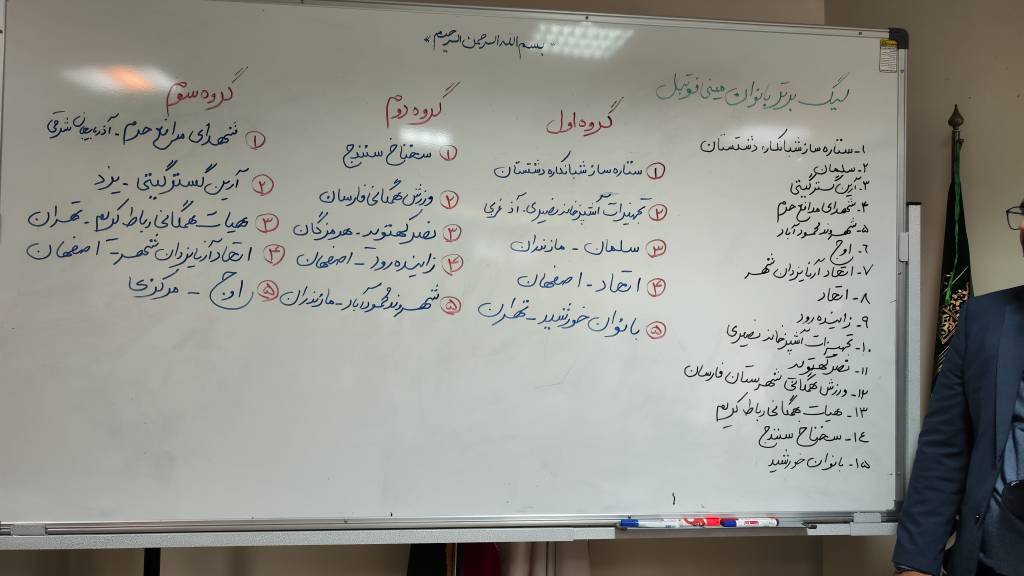 «بسم الله الرحمن الرحیم»
لیگ برتر بانوان مینی فوتبال
۱- ستاره ساز شبانکاره دشتستان
۲- سلمان
۳- آرین گستر گیتی
۴- شهدای مدافع حرم
۵- شهروند محمودآباد
۶- اوج
۷- اتحاد آریا یزدان شهر
۸- اتحاد
۹- زاینده رود
۱۰- تجهیزات آشپزخانه نصیری
۱۱- نصر کهتوید
۱۲- ورزش همگانی شهرستان فارسان
۱۳- هیات همگانی رباط کریم
۱۴- سخناخ سنندج
۱۵- بانوان خورشید
گروه اول
۱ ستاره ساز شبانکاره دشتستان
۲ تجهیزات آشپزخانه نصیری. آذ غربی
۳ سلمان - مازندران
۴ اتحاد - اصفهان
۵ بانوان خورشید - تهران
گروه دوم
۱ سخناخ سنندج
۲ ورزش همگانی فارسان
۳ نصر کهتوید - هرمزگان
۴ زاینده رود - اصفهان
۵ شهروند محمودآباد - مازندران
گروه سوم
۱ شهدای مدافع حرم - آذربایجان شرقی
۲ آرین گستر گیتی - یزد
۳ هیات همگانی رباط کریم - تهران
۴ اتحاد آریا یزدان شهر - اصفهان
۵ اوج - مرکزی